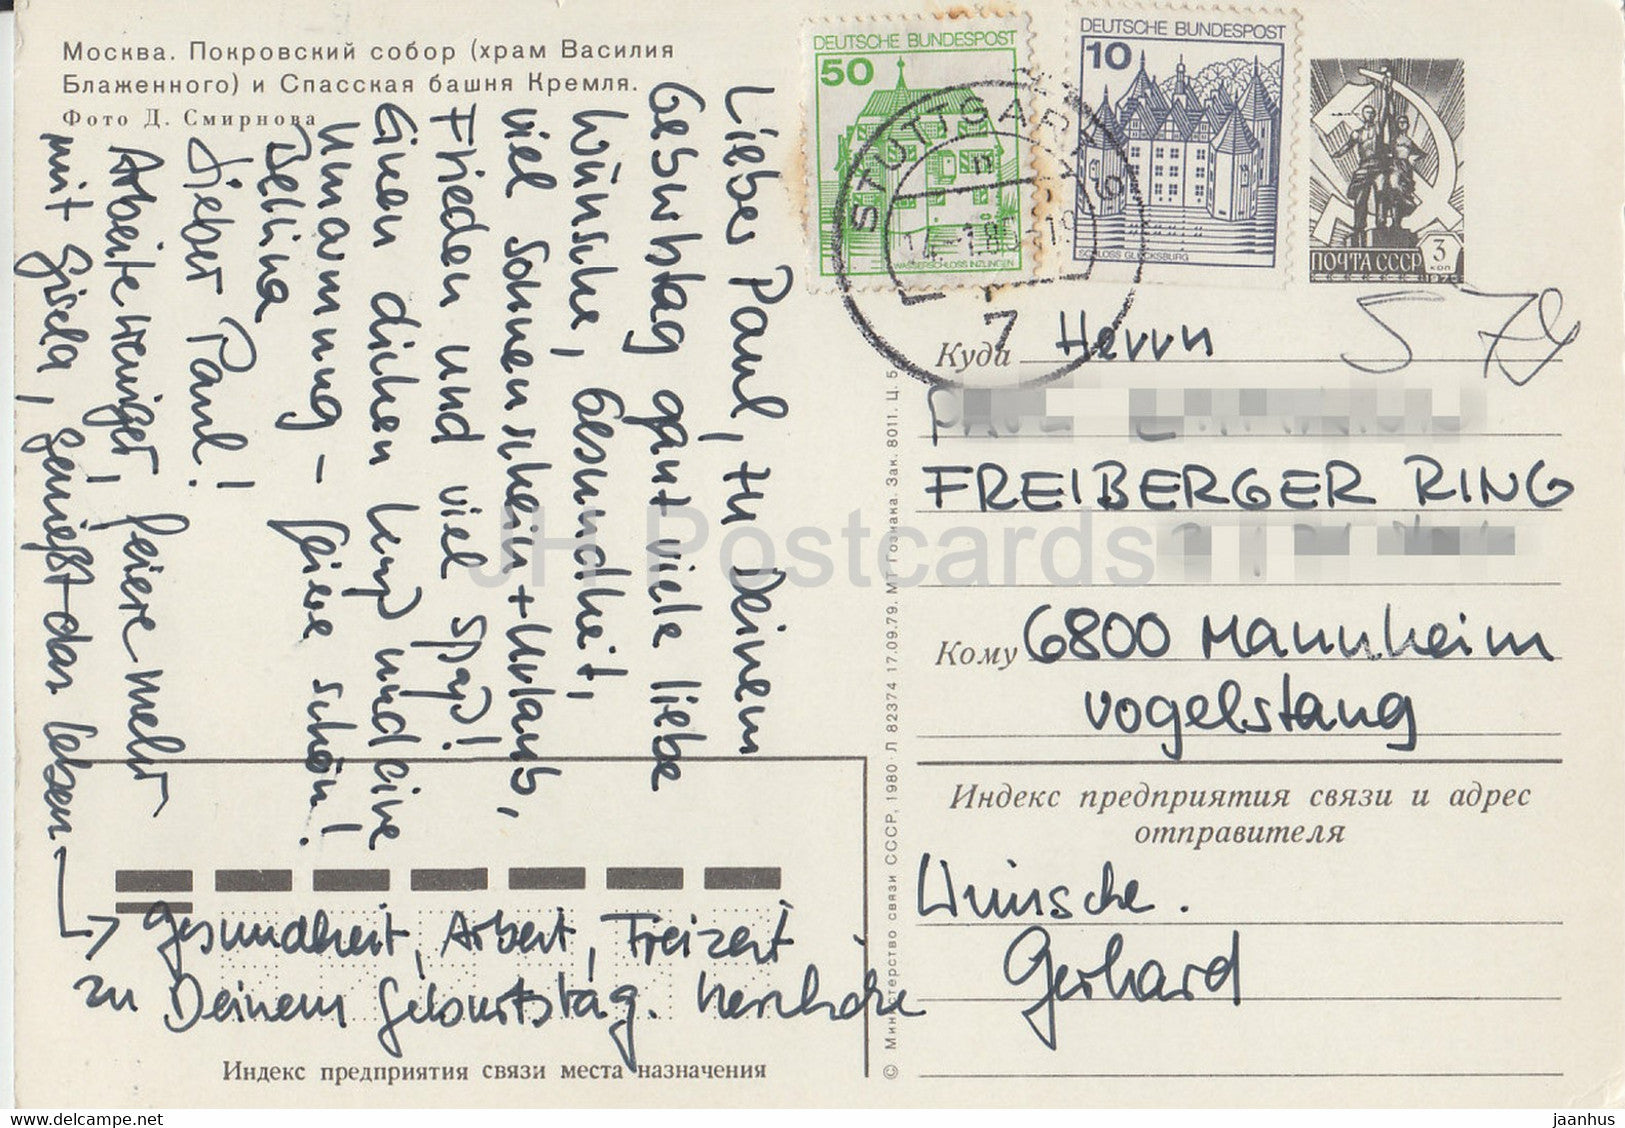 Москва. Покровский собор (храм Василия
Блаженного) и Спасская башня Кремля.
Фото Д. Смирнова
Lieber Paul, zu Deinem
Geburtstag ganz viele liebe
Wünsche, Gesundheit,
viel Sonnenschein + Urlaub,
Frieden und viel Spaß!
Einen dicken Kuß und eine
Umarmung – feiere schön!
Bettina
Lieber Paul!
Arbeite weniger, feiere mehr
mit Gisela, genießt das Leben
Gesundheit, Arbeit, Freizeit
zu Deinem Geburtstag. Herzliche
Индекс предприятия связи места назначения
© Министерство связи СССР, 1980 Л 82374 17.09.79. МТ Гознака. Зак. 8011. Ц. 5
DEUTSCHE BUNDESPOST
50
WASSERSCHLOSS INZLINGEN
DEUTSCHE BUNDESPOST
10
SCHLOSS GLÜCKSBURG
STUTTGART
7
ПОЧТА СССР
3
КОП
Куда Herrn
FREIBERGER RING
Кому 6800 Mannheim
Vogelstang
Индекс предприятия связи и адрес
отправителя
Wünsche.
Gerhard
JH Postcards
jaanhus